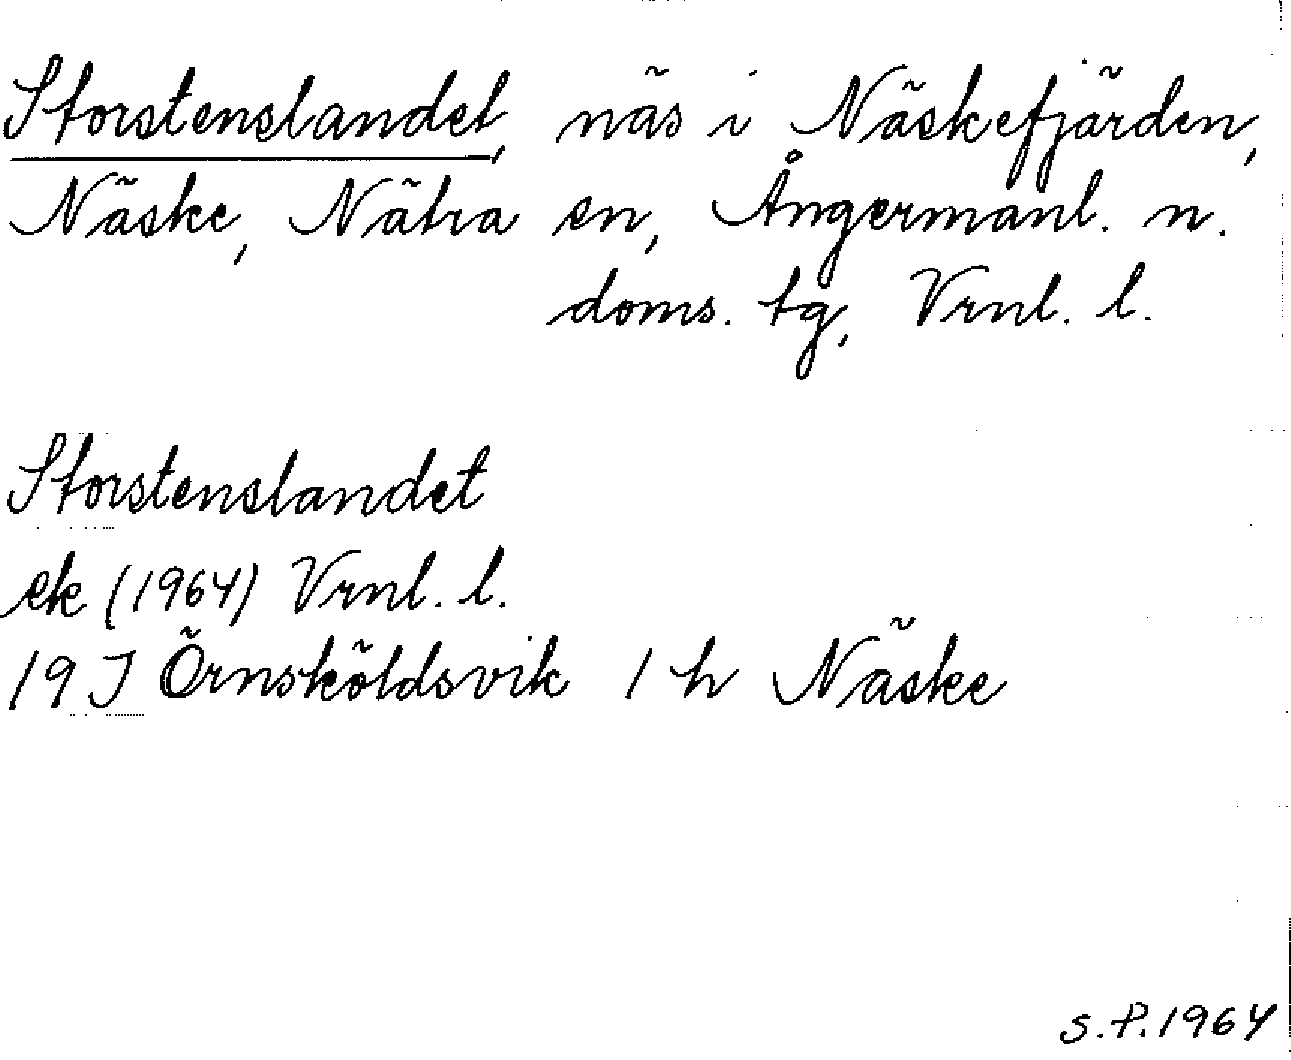 Storstenslandet, näs i Näskefjärden,
Näske, Nätra sn, Ångermanl. n.
doms. tg, Vrnl. l.
Storstenslandet
ek (1964) Vrnl. l.
19 J Örnsköldsvik 1 h Näske
S.P. 1964